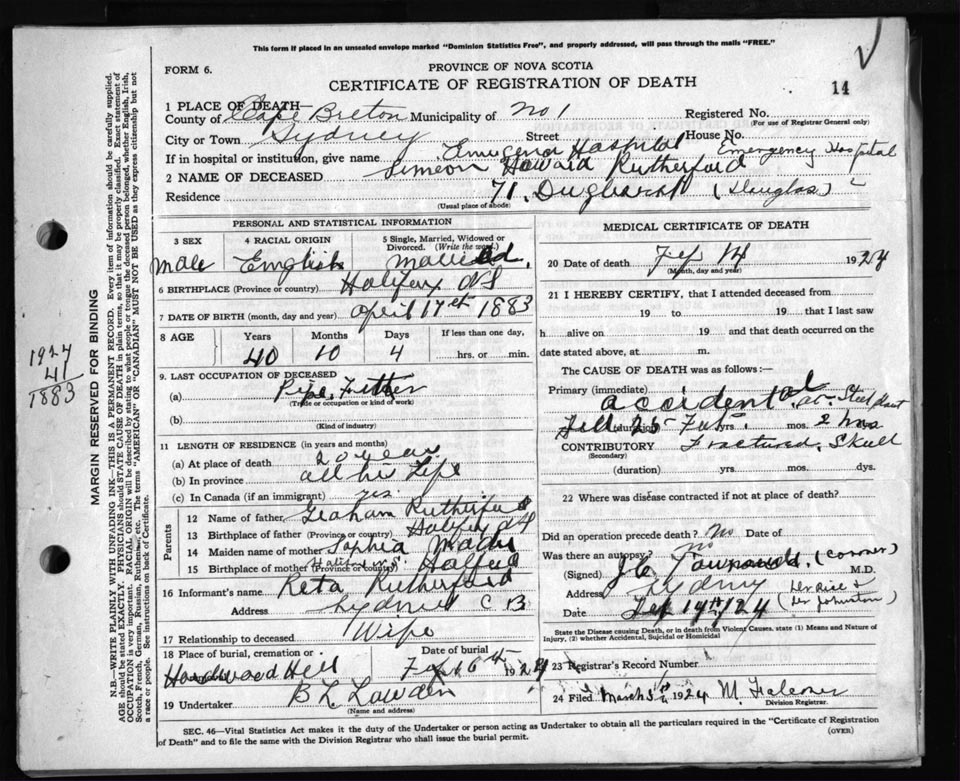 This form if placed in an unsealed envelope marked "Dominion Statistics Free", and properly addressed, will pass through the mails "FREE."
FORM 6.
PROVINCE OF NOVA SCOTIA
CERTIFICATE OF REGISTRATION OF DEATH
14
1 PLACE OF DEATH—
County of Cape Breton Municipality of No 1 Registered No.
(For use of Registrar General only)
City or Town Sydney Street House No.
If in hospital or institution, give name Emergency Hospital Emergency Hospital
2 NAME OF DECEASED Simeon Howard Rutherford
Residence 71, (Douglas)
(Usual place of abode)
PERSONAL AND STATISTICAL INFORMATION
3 SEX 4 RACIAL ORIGIN 5 Single, Married, Widowed or Divorced. (Write the word.)
Male English Married.
6 BIRTHPLACE (Province or country) Halifax NS
7 DATE OF BIRTH (month, day and year) April 17th 1883
8 AGE Years Months Days If less than one day,
40 10 4 hrs. or min.
9. LAST OCCUPATION OF DECEASED
(a) Pipe Fitter
(Trade or occupation or kind of work)
(b)
(Kind of industry)
11 LENGTH OF RESIDENCE (in years and months)
(a) At place of death 20 years
(b) In province all his Life
(c) In Canada (if an immigrant) yes.
Parents
12 Name of father Graham Rutherford
13 Birthplace of father (Province or country) Halifax NS
14 Maiden name of mother Sophia
15 Birthplace of mother (Province or country) Halifax
16 Informant's name Reta Rutherford
Address Sydney C B
17 Relationship to deceased Wife
18 Place of burial, cremation or Date of burial
Hardwood Hill Feb 16th 1924
19 Undertaker B L Lowden
(Name and address)
MEDICAL CERTIFICATE OF DEATH
20 Date of death Feb 14 1924
(Month, day and year)
21 I HEREBY CERTIFY, that I attended deceased from
19 to 19 that I last saw
h alive on 19 and that death occurred on the
date stated above, at m.
The CAUSE OF DEATH was as follows:—
Primary (immediate)
accidental at Steel plant
Fell 25 Feet. (duration) yrs. mos. 2 hrs
CONTRIBUTORY Fractured Skull
(Secondary)
(duration) yrs. mos. dys.
22 Where was disease contracted if not at place of death?
Did an operation precede death? No Date of
Was there an autopsy? no
(Signed) (coroner) M.D.
Address Sydney
Date Feb 14th/24 (Dr Johnston)
State the Disease causing Death, or in death from Violent Causes, state (1) Means and Nature of Injury, (2) whether Accidental, Suicidal or Homicidal
23 Registrar's Record Number
24 Filed March 5th 1924 M. Falconer
Division Registrar.
SEC. 46—Vital Statistics Act makes it the duty of the Undertaker or person acting as Undertaker to obtain all the particulars required in the "Certificate of Registration of Death" and to file the same with the Division Registrar who shall issue the burial permit.
(OVER)
MARGIN RESERVED FOR BINDING
N.B.—WRITE PLAINLY WITH UNFADING INK—THIS IS A PERMANENT RECORD. Every item of information should be carefully supplied.
AGE should be stated EXACTLY. PHYSICIANS should STATE CAUSE OF DEATH in plain terms, so that it may be properly classified. Exact statement of
OCCUPATION is very important. RACIAL ORIGIN will be described by stating to what people or tongue the deceased person belonged, whether English, Irish,
Scotch, French, German, Russian, Ruthenian, etc. The terms "AMERICAN" or "CANADIAN" MUST NOT BE USED as they express citizenship but not
a race or people. See instructions on back of Certificate.
1924
41
1883